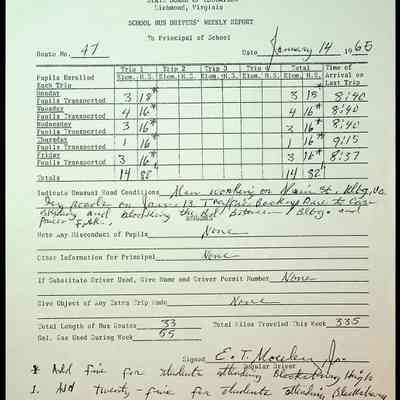 STATE BOARD OF EDUCATION
Richmond, Virginia
SCHOOL BUS DRIVERS' WEEKLY REPORT
To Principal of School
Route No. 47 Date January 14 1965
Trip 1 Trip 2 Trip 3 Trip 4 Total Time of
Pupils Enrolled Elem. H.S. Elem. H.S. Elem. H.S. Elem. H.S. Elem. H.S. Arrival on
Each Trip Last Trip
Monday
Pupils Transported 3 18* 3 18* 8:40
Tuesday
Pupils Transported 4 16* 4 16* 8:40
Wednesday
Pupils Transported 3 16* 3 16* 8:40
Thursday
Pupils Transported 1 16* 1 16* 9:15
Friday
Pupils Transported 3 16* 3 16* 8:37
Totals 14 82 14 82
Indicate Unusual Road Conditions Men working on Main St. Blbg. Va.
Icy roads on Jan. 13 Traffic Backup Due to Cars
sliding and blocking the Rd. between Blbg. and
Prices Fork.
Note Any Misconduct of Pupils None
Other Information for Principal None
If Substitute Used, Give Name and Driver Permit Number None
Give Object of Any Extra Trip Made None
Total Length of Bus Routes 33 Total Miles Traveled This Week 335
Gal. Gas Used During Week 55
Signed E. T. Jr.
Regular Driver
* Add five for students attending Blacksburg High
1. Add twenty-five for students attending Blacksburg